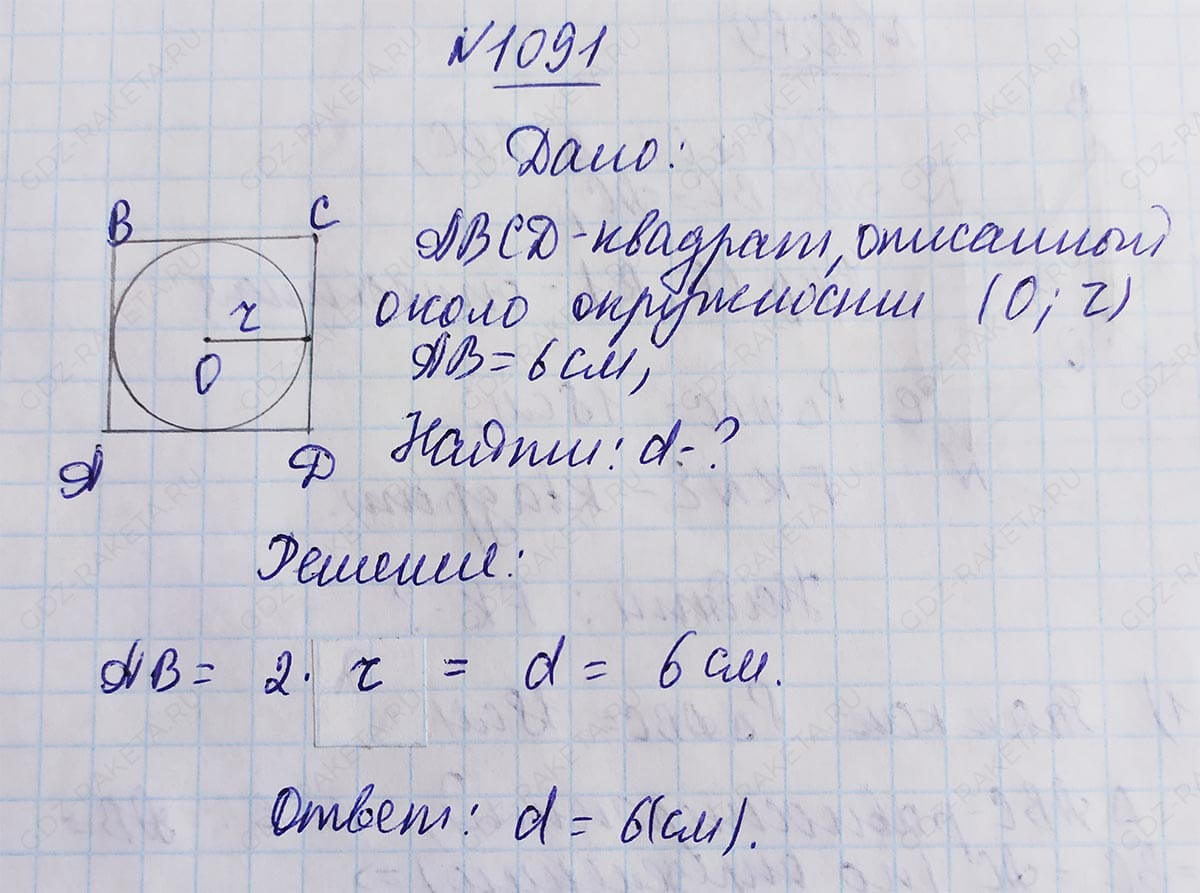 N1091
Дано:
B
C
ABCD-квадрат, описанный
около окружности (O; r)
r
O
AB = 6 см,
A
D
Найти: d-?
Решение:
AB = 2 · r = d = 6 см.
Ответ: d = 6(см).
GDZ-RAKETA.RU